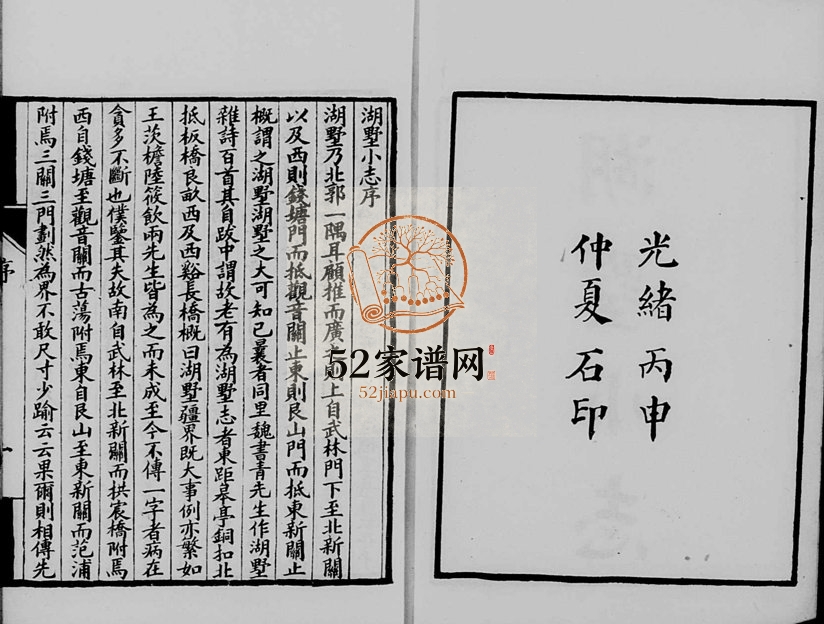 光緒丙申
仲夏石印
湖墅小志序
湖墅乃北郭一隅耳顧推而廣之則上自武林門下至北新關
以及西則錢塘門而抵觀音關止東則艮山門而抵東新關止
概謂之湖墅湖墅之大可知已曩者同里魏書青先生作湖墅
雜詩百首其自跋中謂故老有為湖墅志者東距皋亭銅扣北
抵板橋良畝西及西谿長橋概曰湖墅疆界既大事例亦繁如
王茨檐陸筱飲兩先生皆為之而未成至今不傳一字者病在
貪多不斷也僕鑒其失故南自武林至北新關而拱宸橋附焉
西自錢塘至觀音關而古蕩附焉東自艮山至東新關而范浦
附焉三關三門劃然為界不敢尺寸少踰云云果爾則相傳先
序
一
52家谱网
52jiapu.com